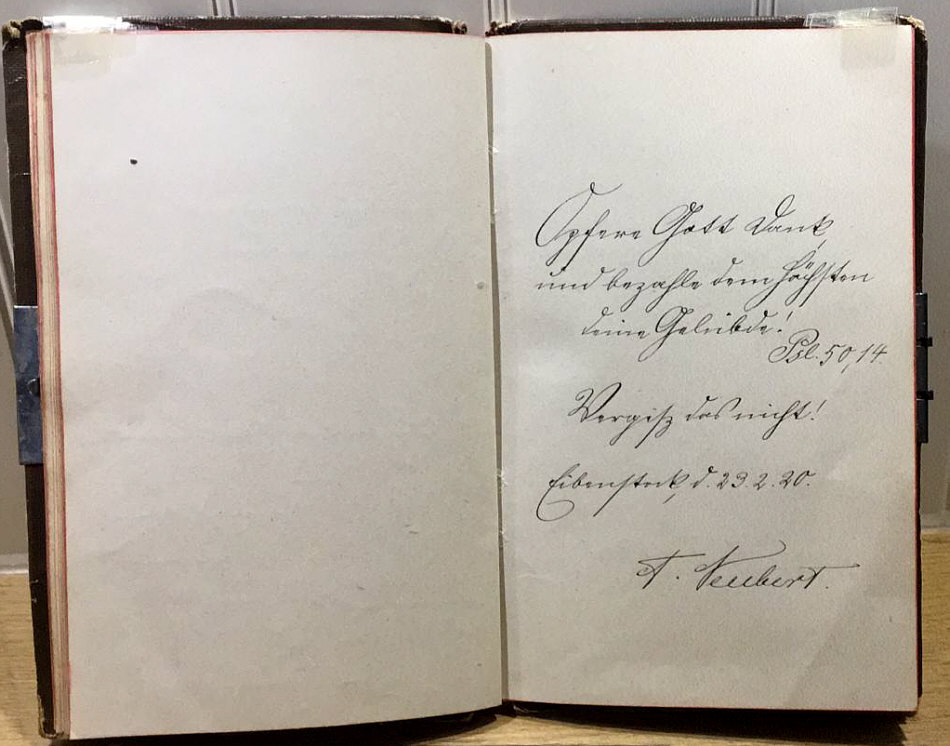 Opfere Gott Dank,
und bezahle dem Höchsten
deine Gelübde!
Psl. 50, 14.
Vergiß das nicht!
Eibenstock, d. 29. 2. 20.
A. Neubert.